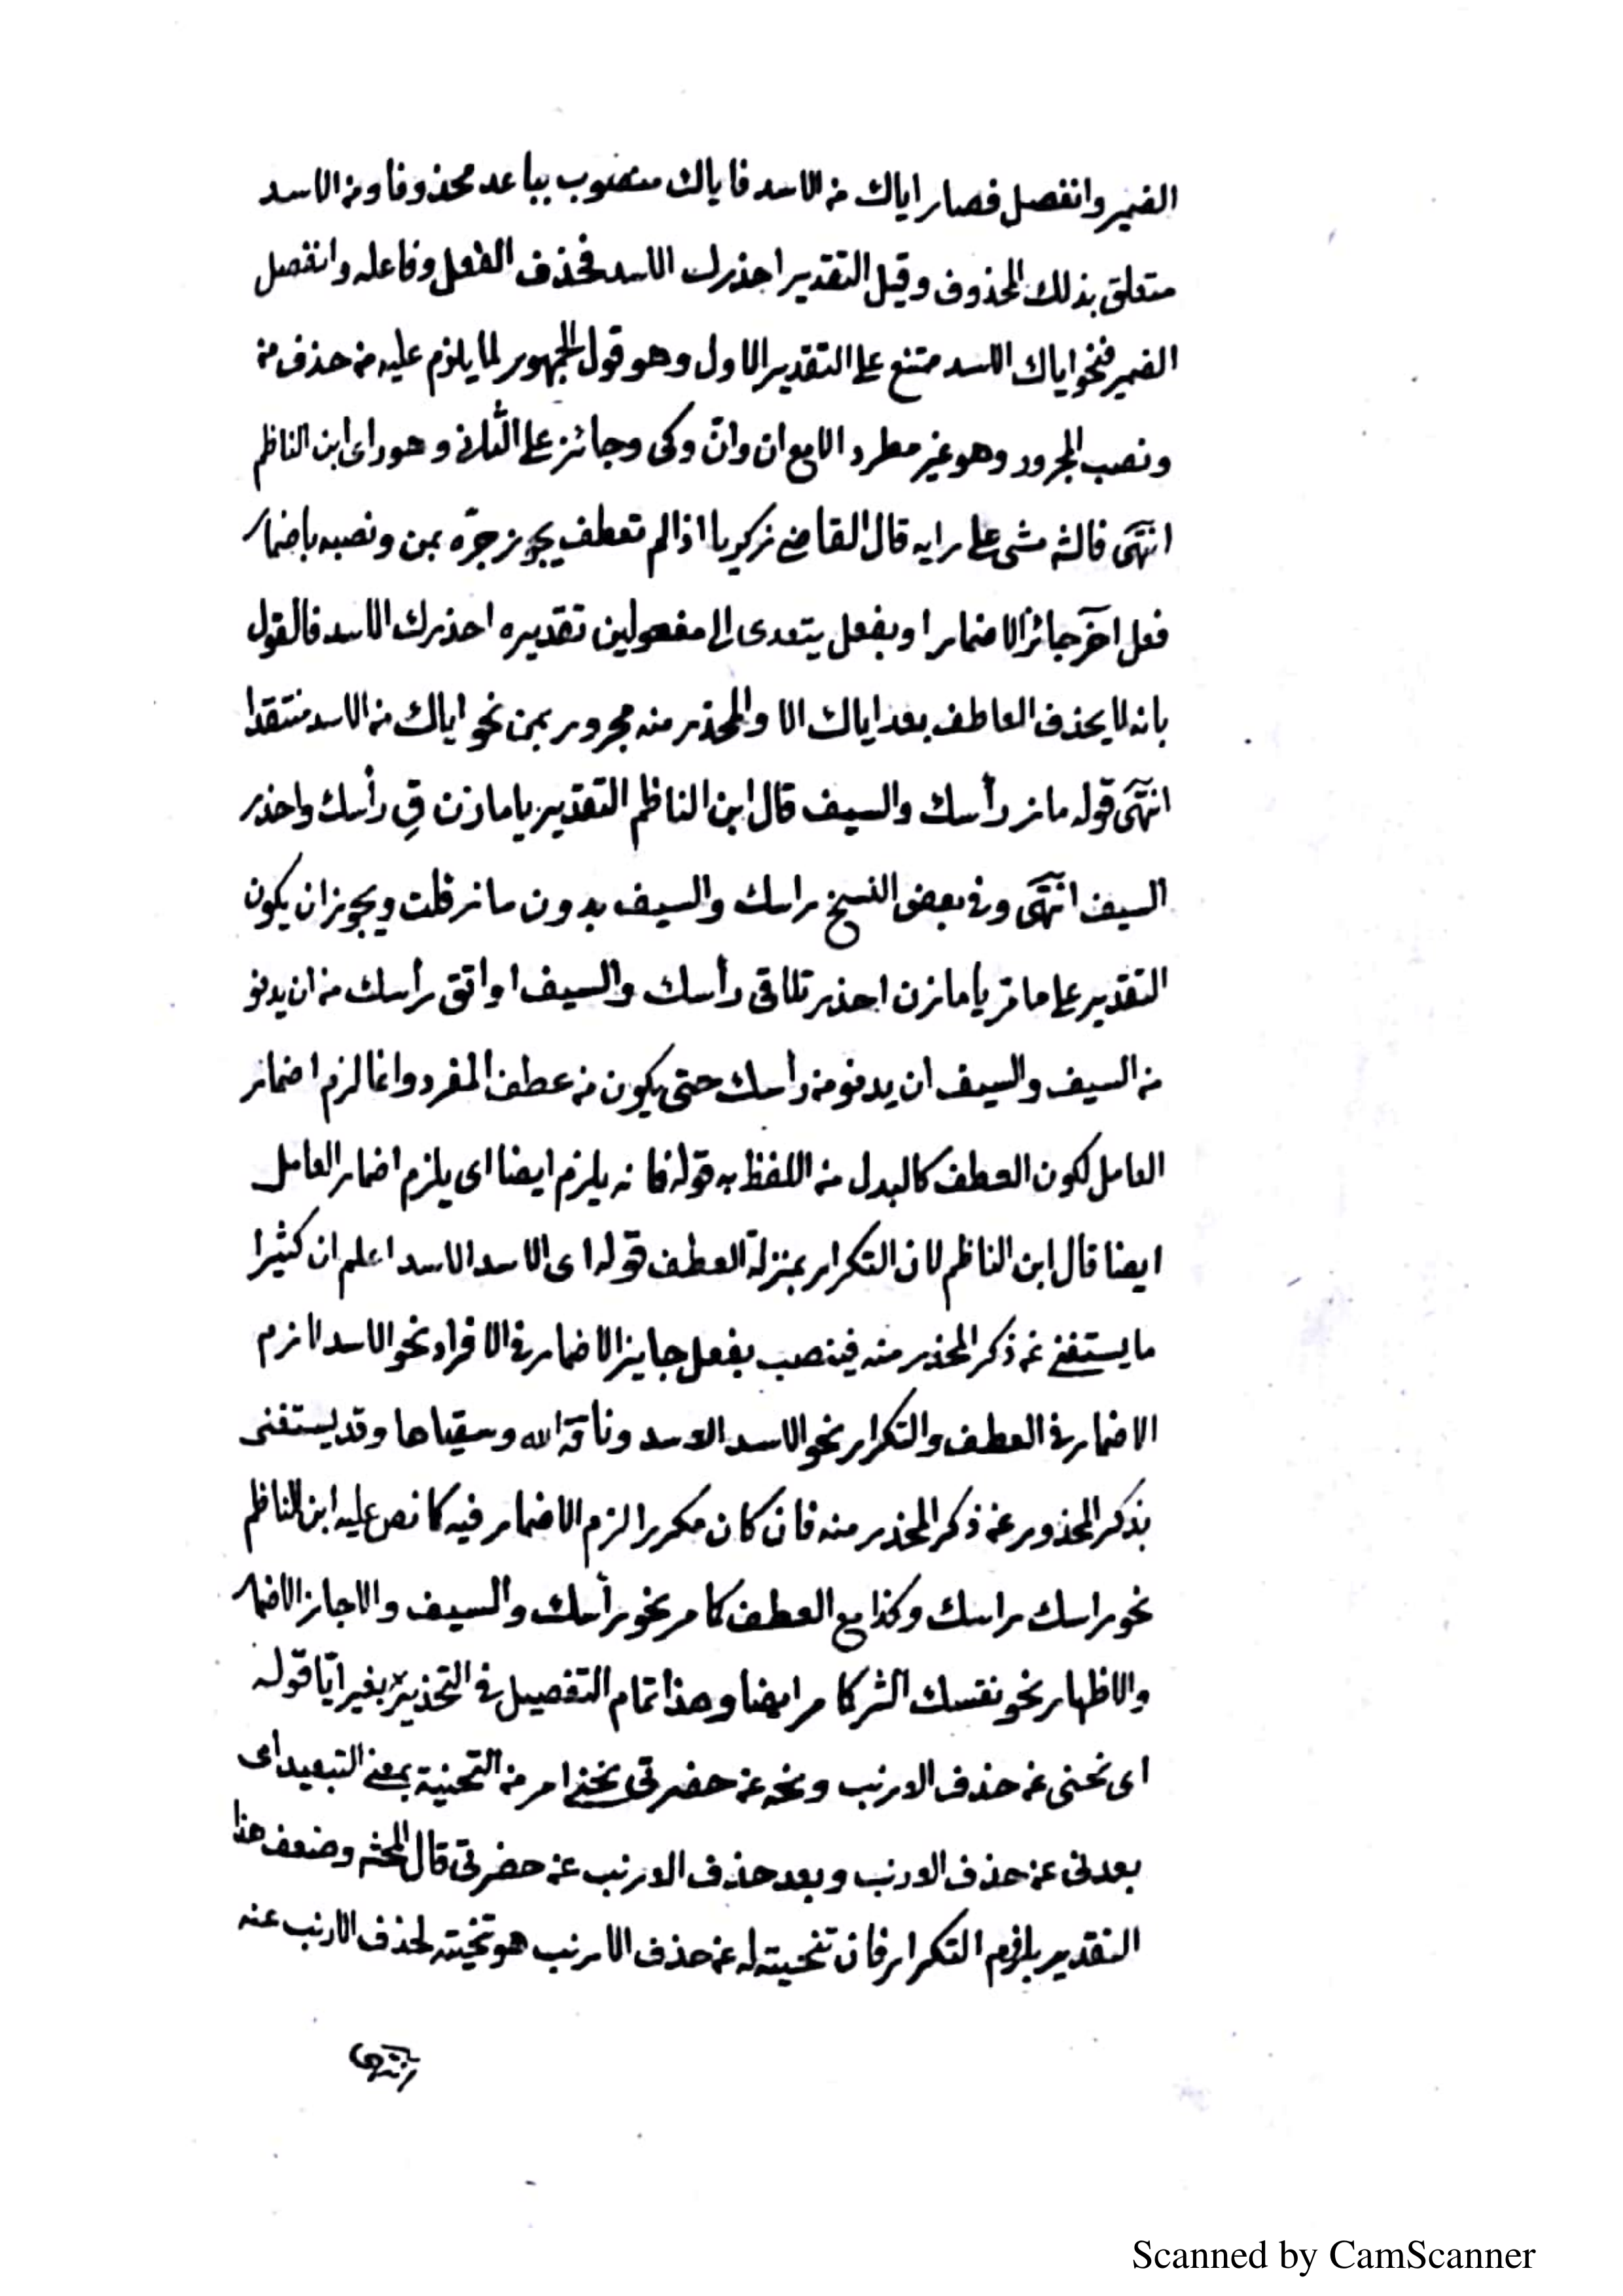 الضمير وانفصل فصار اياك من الاسد فاياك منصوب بباعد محذوفا ومن الاسد
متعلق بذلك المحذوف وقيل التقدير احذرك الاسد فحذف الفعل وفاعله وانفصل
الضمير فنحو اياك الاسد ممتنع على التقدير الاول وهو قول الجمهور لما يلزم عليه من حذف من
ونصب المجرور وهو غير مطرد الا مع ان وانّ وكى وجائز على الثانى وهو راى ابن الناظم
انتهى فالش مشى على رايه قال القاضى زكريا اذا لم تعطف يجوز جرّه بمن ونصبه باضمار
فعل آخر جائز الاضمار او بفعل يتعدى الى مفعولين تقديره احذرك الاسد فالقول
بانه لا يحذف العاطف بعد اياك الا والمحذر منه مجرور بمن نحو اياك من الاسد منتقدا
انتهى قوله ماز رأسك والسيف قال ابن الناظم التقدير يا مازن قِ رأسك واحذر
السيف انتهى وفى بعض النسخ راسك والسيف بدون ماز قلت ويجوز ان يكون
التقدير على ما مرّ يا مازن احذر تلاقى رأسك والسيف او اتق رأسك من ان يدنو
من السيف والسيف ان يدنو من رأسك حتى يكون من عطف المفرد وانما لزم اضمار
العامل لكون العطف كالبدل من اللفظ به قوله فانه يلزم ايضا اى يلزم اضمار العامل
ايضا قال ابن الناظم لان التكرار بمنزلة العطف قوله اى الاسد الاسد اعلم ان كثيرا
ما يستغنى عن ذكر المحذر منه فينصب بفعل جايز الاضمار فى الافراد نحو الاسد لازم
الاضمار فى العطف والتكرار نحو الاسد الاسد وناقة الله وسقياها وقد يستغنى
بذكر المحذور عن ذكر المحذر منه فان كان مكررا لزم الاضمار فيه كما نص عليه ابن الناظم
نحو راسك راسك وكذا مع العطف كما مر نحو رأسك والسيف والا جاز الاضمار
والاظهار نحو نفسك الشر كما مر ايضا وهذا تمام التفصيل فى التحذير بغير ايّا قوله
اى نحنى عن حذف الارنب ونحه عن حضرتى نحنى امر من التحنية بمعنى التبعيد اى
بعدنى عن حذف الارنب وبعد حذف الارنب عن حضرتى قال المحشى وضعف هذا
التقدير بلزوم التكرار فان تنحيته له عن حذف الارنب هو تنحيته لحذف الارنب عنه
انتهى
Scanned by CamScanner